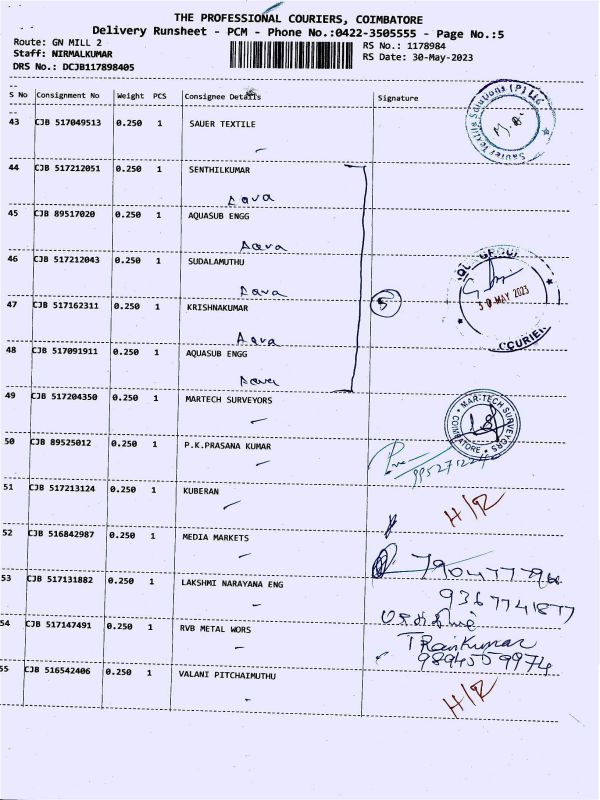 THE PROFESSIONAL COURIERS, COIMBATORE
Delivery Runsheet - PCM - Phone No.:0422-3505555 - Page No.:5
Route: GN MILL 2
RS No.: 1178984
Staff: NIRMALKUMAR
RS Date: 30-May-2023
DRS No.: DCJB117898405
S No Consignment No Weight PCS Consignee Details Signature
43 CJB 517049513 0.250 1 SAUER TEXTILE
Sauer Textile Solutions (P) Ltd
44 CJB 517212051 0.250 1 SENTHILKUMAR
Aqva
45 CJB 89517020 0.250 1 AQUASUB ENGG
Aqva
46 CJB 517212043 0.250 1 SUDALAMUTHU
Aqva
30 MAY 2023
COURIER
47 CJB 517162311 0.250 1 KRISHNAKUMAR
5
Aqva
48 CJB 517091911 0.250 1 AQUASUB ENGG
Aqva
49 CJB 517204350 0.250 1 MARTECH SURVEYORS
MAR-TECH SURVEYORS
COIMBATORE
50 CJB 89525012 0.250 1 P.K.PRASANA KUMAR
51 CJB 517213124 0.250 1 KUBERAN
H/R
52 CJB 516842987 0.250 1 MEDIA MARKETS
53 CJB 517131882 0.250 1 LAKSHMI NARAYANA ENG
9367741877
54 CJB 517147491 0.250 1 RVB METAL WORS
T Ravikumar
9894559974
55 CJB 516542406 0.250 1 VALANI PITCHAIMUTHU
H/R